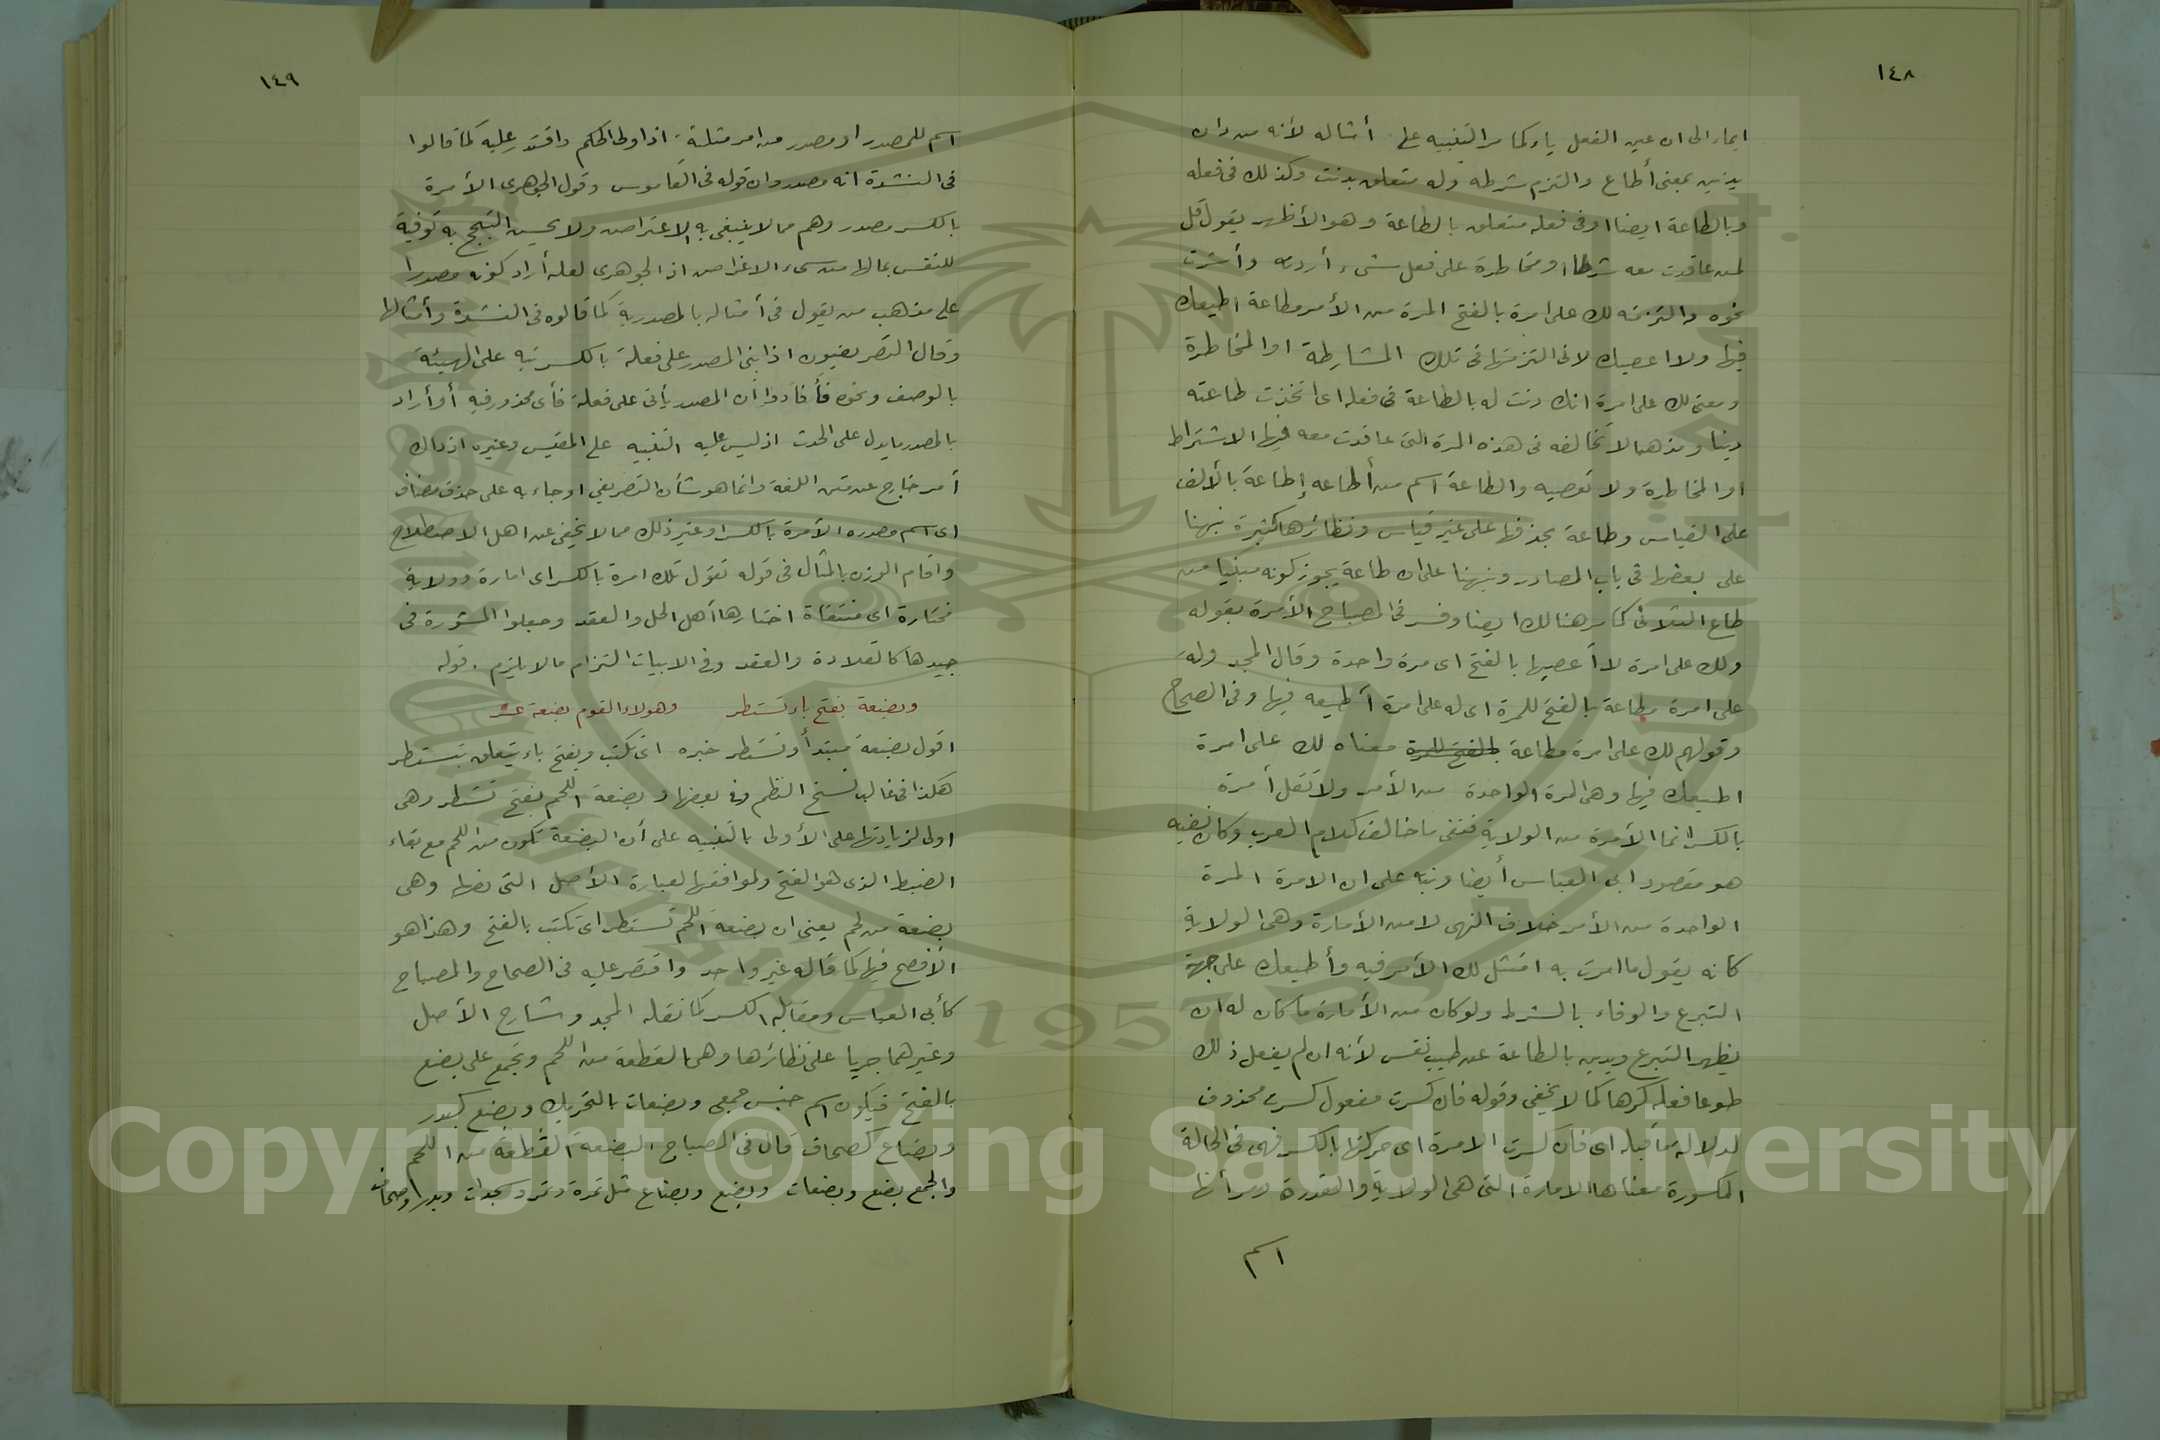 ١٤٨
ايماء الى ان عين الفعل ياء كما مر التنبيه على أمثاله لأنه من دان
يدين بمعنى أطاع والتزم شرطه وله متعلق بدنت وكذلك في فعله
وبالطاعة ايضا او في فعله متعلق بالطاعة وهو الأظهر يقول قل
لمن عاقدت معه شرطا او مخاطرة على فعل شيء أردته وأشرت
نحوه والتزمته لك على امرة بالفتح المرة من الأمر مطاعة اطيعك
فيها ولا اعصيك لاني التزمتها في تلك المشارطة او المخاطرة
ومعنى لك على امرة انك دنت له بالطاعة في فعله اى اتخذت طاعته
دينا ومذهبا لا تخالفه في هذه المرة التي عاقدت معه فيها الاشتراط
او المخاطرة ولا تعصيه والطاعة اسم من أطاعه إطاعة بالألف
على القياس وطاعة بحذفها على غير قياس ونظائرها كثيرة نبهنا
على بعضها في باب المصادر ونبهنا على ان طاعة يجوز كونه مبنيا من
طاع الثلاثي كما مر هنالك ايضا وفسر في المصباح الأمرة بقوله
ولك على امرة لا أعصيها بالفتح اى مرة واحدة وقال المجد وله
على امرة مطاعة بالفتح للمرة اى له على امرة أطيعه فيها وفي الصحاح
وقولهم لك على امرة مطاعة بالفتح للمرة معناه لك على امرة
اطيعك فيها وهي المرة الواحدة من الأمر ولا تقل أمرة
بالكسر انما الأمرة من الولاية فنفى ما خالف كلام العرب وكان نفيه
هو مقصود ابى العباس أيضا ونبه على ان الامرة المرة
الواحدة من الأمر خلاف النهى لا من الأمارة وهى الولاية
كانه يقول ما امرت به امتثل لك الأمر فيه وأطيعك على جهة
التبرع والوفاء بالشرط ولو كان من الأمارة ما كان له ان
يظهر التبرع ويدين بالطاعة عن طيب نفس لأنه ان لم يفعل ذلك
طوعا فعله كرها كما لا يخفى وقوله فان كسرت مفعول كسرت محذوف
لدلالة ما قبله اى فان كسرت الامرة اى حركتها بالكسر فهى في الحالة
المكسورة معناها الامارة التى هى الولاية والقدرة
اسم
١٤٩
اسم للمصدر او مصدر من امر مثلثة اذا ولى الحكم واقتدر عليه كما قالوا
في النشدة انه مصدر وان قوله في القاموس وقول الجوهرى الأمرة
بالكسر مصدر وهم مما لا ينبغى به الاعتراض ولا يحسن التبجح به توفية
للنفس بمالها من سىء الاغراض اذ الجوهرى لعله أراد كونه مصدرا
على مذهب من يقول في أمثاله بالمصدرية كما قالوه في النشدة وأمثالها
وقال التصريفيون اذا بنى المصدر على فعلة بالكسر نبه على الهيئة
بالوصف ونحوه فأفادوا أن المصدر يأتى على فعلة فأى محذور فيه أو أراد
بالمصدر ما يدل على الحدث اذ ليس عليه التنبيه على المقيس وغيره اذ ذاك
أمر خارج عن متن اللغة وانما هو شأن التصريفي او جاء به على حذف مضاف
اى اسم مصدره الأمرة بالكسر او غير ذلك مما لا يخفى عن اهل الاصطلاح
واقام الوزن بالمثال في قوله تقول تلك امرة بالكسر اى امارة وولاية
مختارة اى منتقاة اختارها أهل الحل والعقد وجعلوا المشورة في
جيدها كالقلادة والعقد وفي الابيات التزام ما لا يلزم . قوله
وبضعة بفتح باء تستطر وهولاء القوم بضعة عشر
اقول بضعة مبتدأ وتستطر خبره اى تكتب وبفتح باء يتعلق بتستطر
هكذا في غالب نسخ النظم وفي بعضها وبضعة اللحم بفتح تستطر وهى
اولى لزيادتها على الأولى بالتنبيه على أن البضعة تكون من اللحم مع بقاء
الضبط الذى هو الفتح ولموافقتها لعبارة الأصل التى نصها وهى
بضعة من لحم يعنى ان بضعة اللحم تستطر اى تكتب بالفتح وهذا هو
الأفصح فيها كما قاله غير واحد واقتصر عليه في الصحاح والمصباح
كأبى العباس ومقابله الكسر كما نقله المجد وشارح الأصل
وغيرهما جريا على نظائرها وهى القطعة من اللحم وتجمع على بضع
بالفتح فيكون اسم جنس جمعى وبضعات بالتحريك وبضع كبدر
وبضاع كصحاف قال في المصباح البضعة القطعة من اللحم
والجمع بضع وبضعات وبضع وبضاع مثل تمرة وتمر وسجدات وبدر وصحاف
Copyright © King Saud University
1957